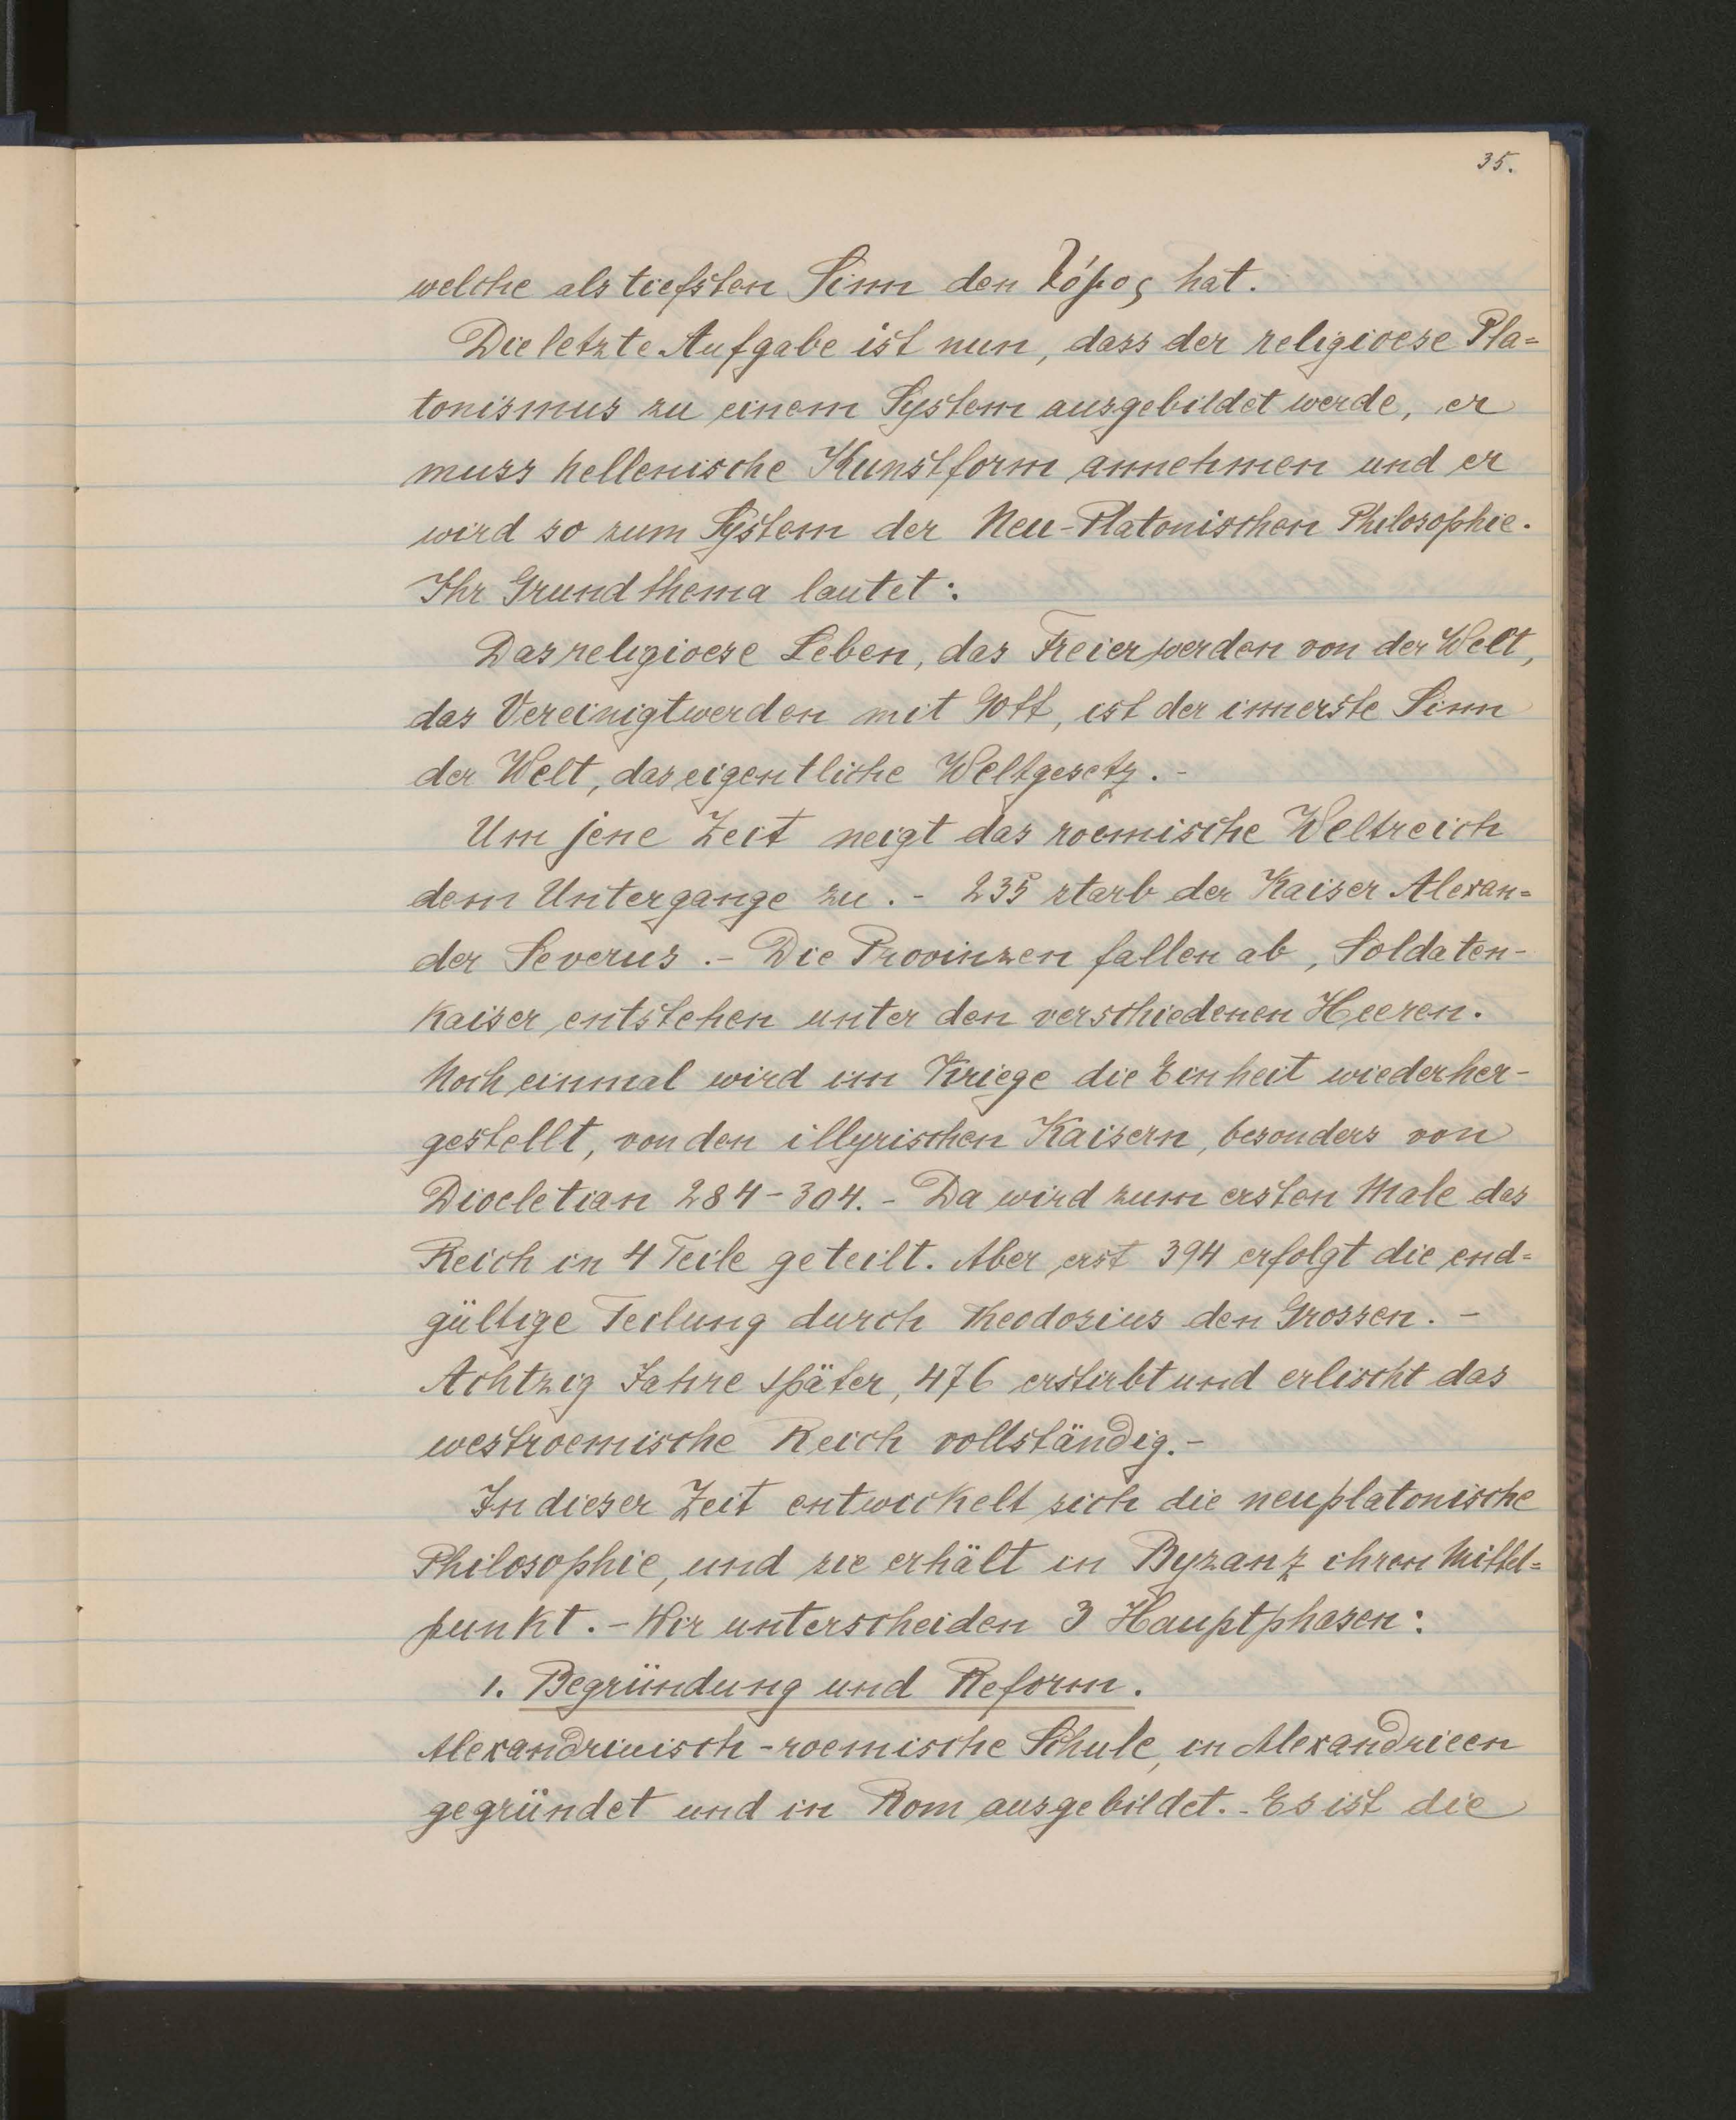 35.
welche als tiefsten Sinn den λόγος hat.
Die letzte Aufgabe ist nun, dass der religioese Pla=
tonismus zu einem System ausgebildet werde, er
muss hellenische Kunstform annehmen und er
wird so zum System der Neu-Platonischen Philosophie.
Ihr Grundthema lautet:
Das religioese Leben, das Freierwerden von der Welt,
das Vereinigtwerden mit Gott, ist der innerste Sinn
der Welt, das eigentliche Weltgesetz. -
Um jene Zeit neigt das roemische Weltreich
dem Untergange zu. - 235 starb der Kaiser Alexan=
der Severus. - Die Provinzen fallen ab, Soldaten-
kaiser entstehen unter den verschiedenen Heeren.
Noch einmal wird im Kriege die Einheit wiederher-
gestellt, von den illyrischen Kaisern, besonders von
Diocletian 284-304. - Da wird zum ersten Male das
Reich in 4 Teile geteilt. Aber erst 394 erfolgt die end=
gültige Teilung durch Theodosius den Grossen. -
Achtzig Jahre später, 476 erstirbt und erlischt das
westroemische Reich vollständig. -
In dieser Zeit entwickelt sich die neuplatonische
Philosophie, und sie erhält in Byzanz ihren Mittel=
punkt. - Wir unterscheiden 3 Hauptphasen:
1. Begründung und Reform.
Alexandrinisch-roemische Schule, in Alexandrieen
gegründet und in Rom ausgebildet. - Es ist die